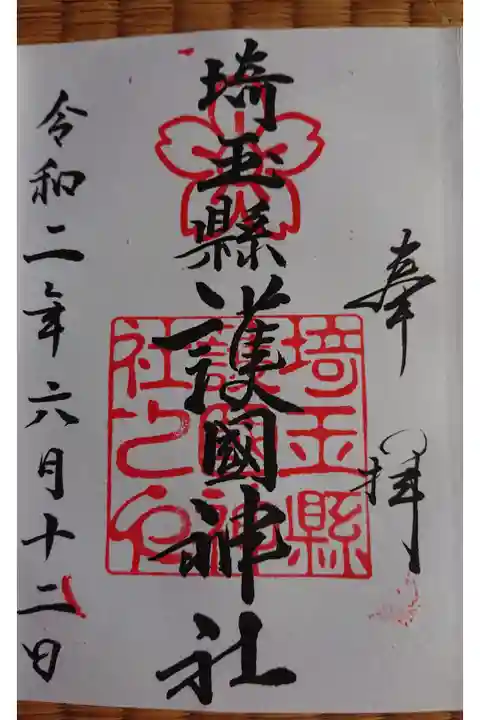 奉拝
埼玉縣護國神社
埼玉縣護國神社之印
令和二年六月十二日